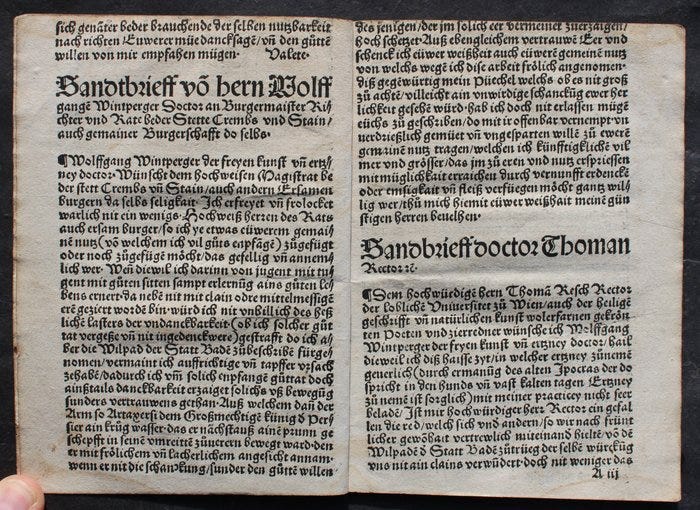 sich genäter beder brauchende der selben nutzbarkeit
nach richten/Euwerer müe dancksagē/vn̄ den güttē
willen von mir empfahen mügen· Valete·
Sandtbrieff vō hern Wolff
gangē Wintperger Doctor an Burgermaister Ri⸗
chter vnd Rate beder Stette Crembs vnd Stain/
auch gemainer Burgerschafft do selbs·
¶Wolffgang Wintperger der freyen kunst vn̄ ertz⸗
ney doctor·Wünscht dem hochweisen Magistrat be
der stett Crembs vn̄ Stain/auch andern Ersamen
burgern da selbs seligkait·Ich erfreyet vn̄ frolocket
warlich nit ein wenigs·Hochweiß herren des Rats
auch ersam burger/so ich ye etwas eüwerem gemai⸗
nē nutz(vō welchem ich vil güts enpfagē) zügefügt
oder noch zügefügē möcht/das gesellig vn̄ annem⸗
lich wer·Wen̄ diewil ich darinn von jugent mit tu⸗
gent mit güten sitten sampt erlernūg ains güten le⸗
bens ernert·da nebē nit mit clain odre mittelmessige
erē geziert wordē bin·würd ich nit vnbillich des heß
liche lasters der vndanckbarkeit(ob ich solcher güt
tat vergeßē vn̄ nit ingedenck were)gestrafft do ich a⸗
ber die Wilpad der Statt Badē zübeschribē fürge⸗
nomen/vermaint ich auffrichtige vn̄ tapffer vrsach
zehabē/dadurch ich vm̄ solich enpfangē güttat doch
ainßtails danckbarkeit erzaiget solichs vß bewegūg
sunders vertrauwens gethan·Auß welchem dan̄ der
Arm so Artaxersi dem Großmechtigē künig d̄ Per
sier ain krüg wasser·das er nächstauß ainē prunn ge
schepfft in seinē vmreittē züuerern bewegt ward·den
er mit frölichem vn̄ lacherlichem angesicht annam·
wenn er nit die schanckung/sunder den güttē willen
des jenigen/der jm solich eer vermeinet zuerzaigen/
hoch schetzet·Auß ebengleichem vertrauwē Eer vnd
schenck ich eüwer weißheit auch eüwerē gemeinē nutz
von welchs wegē ich dise arbeit frölich angenomen·
diß gegēwürtig mein Püechel welchs ob es nit groß
zü achtē/villeicht ain vnwirdige schanckūg ewer her
lichkeit gesehē würd·hab ich doch nit erlassen mügē
eüchs zü geschribē/do mit ir offenbar vernempt·vn
verdrießlich gemüet vn̄ vngesparten willē zü ewerē
gemainē nutz tragen/welchen ich künfftiglichē vil
mer vnd grösser/das jm zü eren vnd nutz ersprießen
mit müglichkait erraichē durch vernunfft erdenckē
oder emsigkait vn̄ fleiß verfüegen möcht gantz wil⸗
lig wer/thü mich hiemit eüwer weißhait meinē gün
stigen herren beuelhen·
Sandbrieff doctor Thoman
Rector ꝛc·
¶Dem hochwürdigē hern Thomā Resch Rector
der loblichē Vniuersitet zü Wien/auch der heiligē
geschrifft vn̄ natürlichen kunst wolerfarnen gekrōn
ten Poeten vnd zierredner wünsche ich Wolffgang
Wintperger der freyen kunst vn̄ ertzney doctor/hail
dieweil ich diß haisse zyt/in welcher ertzney zünemē
geuerlich(durch ermanūg des alten Ipocras der do
spricht in den hunds vn̄ vast kalten tagen Ertzney
zü nemē ist sorglich)mit meiner practicey nicht seer
beladē/Ist mir hochwürdiger herr Rector ein gefal
len die red/welch sich vnd andern/so wir nach frünt
licher gewōhait vertrewlich miteinand hieltē/vō dē
Wilpadē d̄ Statt Badē zütrüeg der selbē würckūg
vns nit ain clains verwūdert·doch nit weniger das
A iij